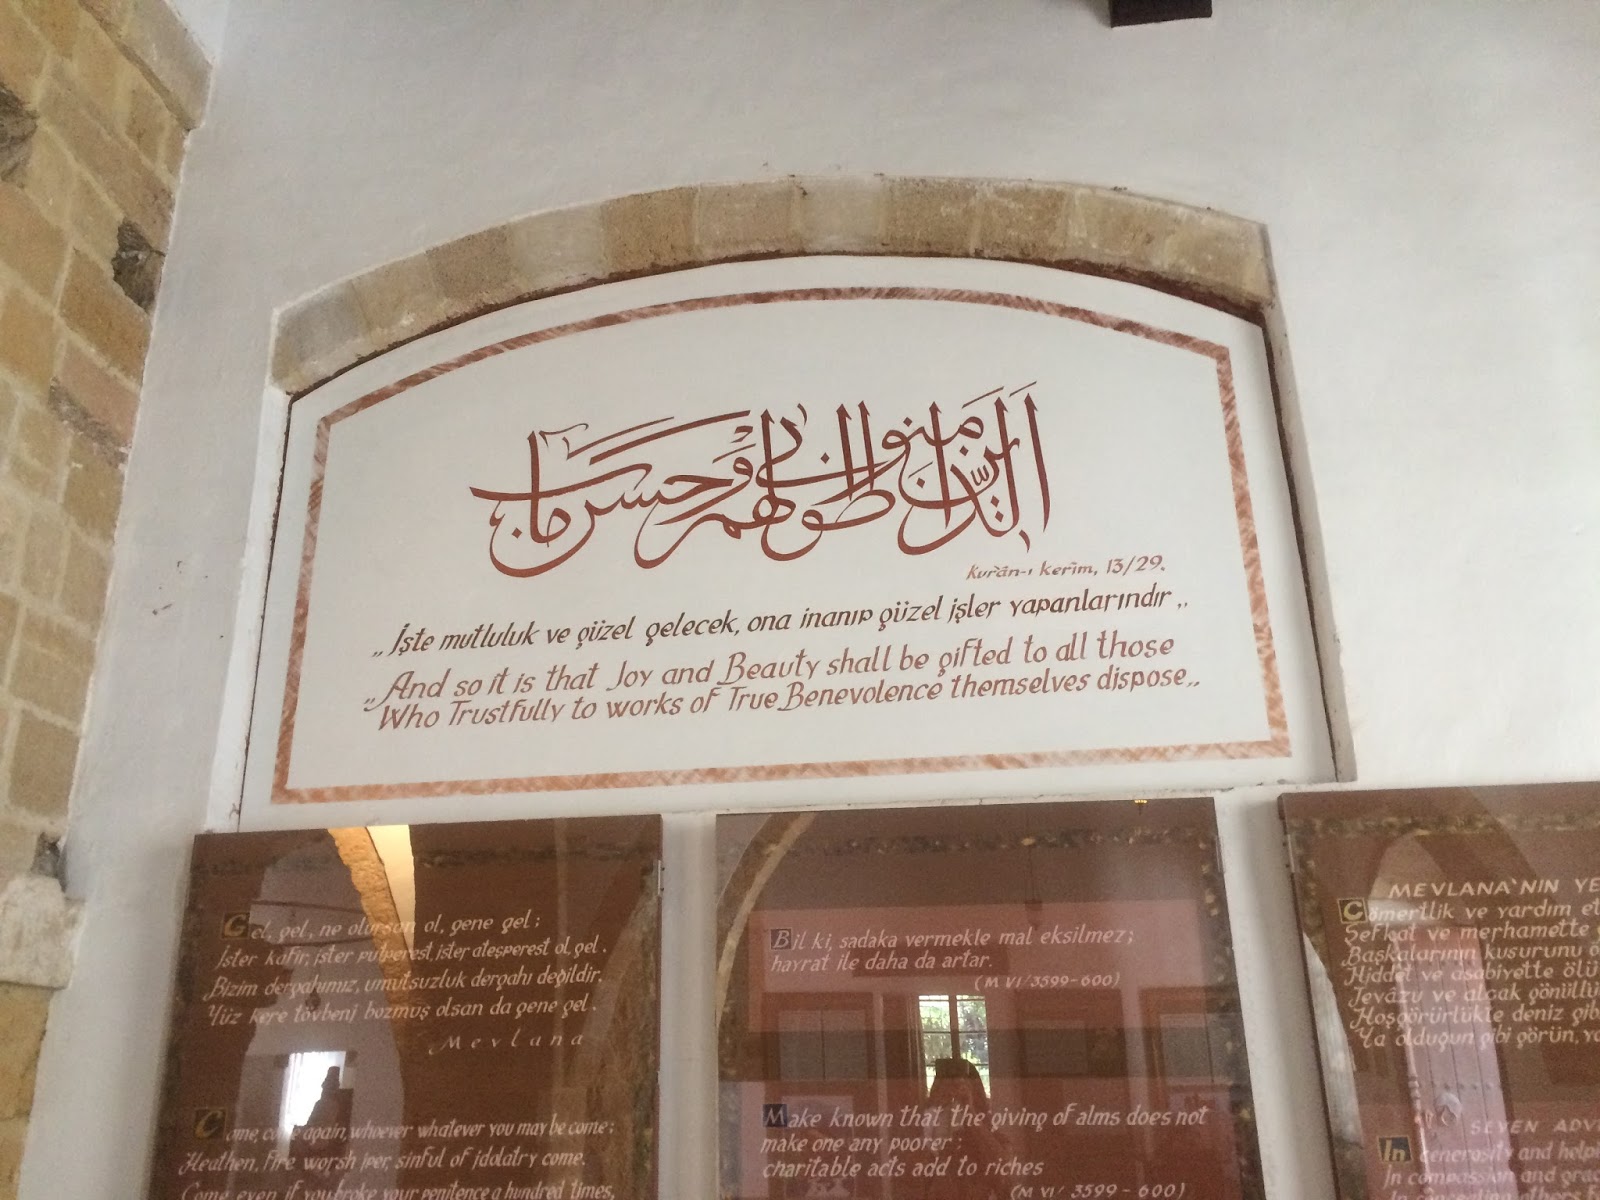 الذين آمنوا طوبى لهم وحسن مآب
Kur'ân-ı kerîm, 13/29.
„ İşte mutluluk ve güzel gelecek, ona inanıp güzel işler yapanlarındır „
„ And so it is that Joy and Beauty shall be gifted to all those
Who Trustfully to works of True Benevolence themselves dispose „
Gel, gel, ne olursan ol, gene gel;
İster kafir, ister putperest, ister ateşperest ol, gel.
Bizim dergahımız, umutsuzluk dergahı değildir.
Yüz kere tövbeni bozmuş olsan da gene gel.
Mevlana
Come, come again, whoever whatever you may be come;
Heathen, fire worshiper, sinful of idolatry come.
Come even if you broke your penitence a hundred times,
Bil ki, sadaka vermekle mal eksilmez;
hayrat ile daha da artar.
(M VI/3599-600)
Make known that the giving of alms does not
make one any poorer;
charitable acts add to riches
(M VI/ 3599-600)
MEVLANA'NIN YE
Cömertlik ve yardım et
Şefkat ve merhamette
Başkalarının kusurunu ö
Hiddet ve asabiyette ölü
Tevâzu ve alçak gönüllü
Hoşgörürlükte deniz gib
Ya olduğun gibi görün, ya
SEVEN ADV
In generosity and helpi
In compassion and grac